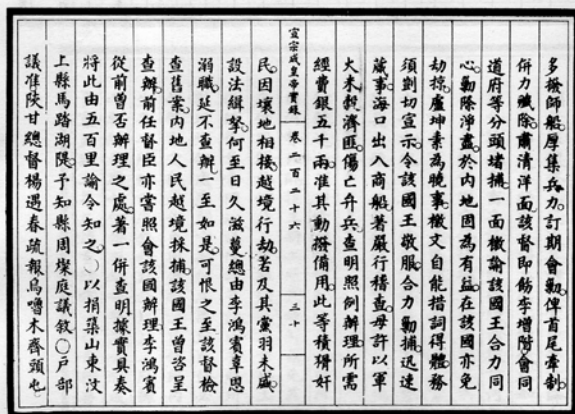 多撥師船厚集兵力訂期會勦俾首尾牽制
併力殲除肅清洋面該督即飭李增階會同
道府等分頭堵捕一面檄諭該國王合力同
心勦除淨盡於內地固為有益在該國亦免
劫掠盧坤素為曉事檄文自能措詞得體務
須剴切宣示令該國王敬服合力勦捕迅速
蕆事海口出入商船著嚴行稽查毋許以軍
火米穀濟匪傷亡弁兵查明照例辦理所需
經費銀五千兩准其動撥備用此等積猾奸
宣宗成皇帝實錄 卷二百二十六 三十
民因壤地相接越境行劫若及其黨羽未盛
設法緝拏何至日久滋蔓總由李鴻賓辜恩
溺職延不查辦一至如是可恨之至該督檢
查舊案內地人民越境採捕該國王曾咨呈
查辦前任督臣亦當照會該國辦理李鴻賓
從前曾否辦理之處著一併查明據實具奏
將此由五百里諭令知之○以捐築山東汶
上縣馬踏湖隄予知縣周燦庭議敘○戶部
議准陝甘總督楊遇春疏報烏嚕木齊頭屯